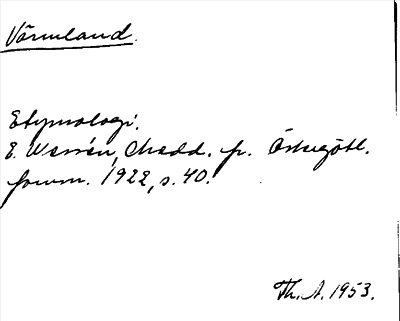 Värmland.
Etymologi.
E. Wessén, Medd. fr. Östergötl.
fornm. 1922, s. 40.
Th. A. 1953.